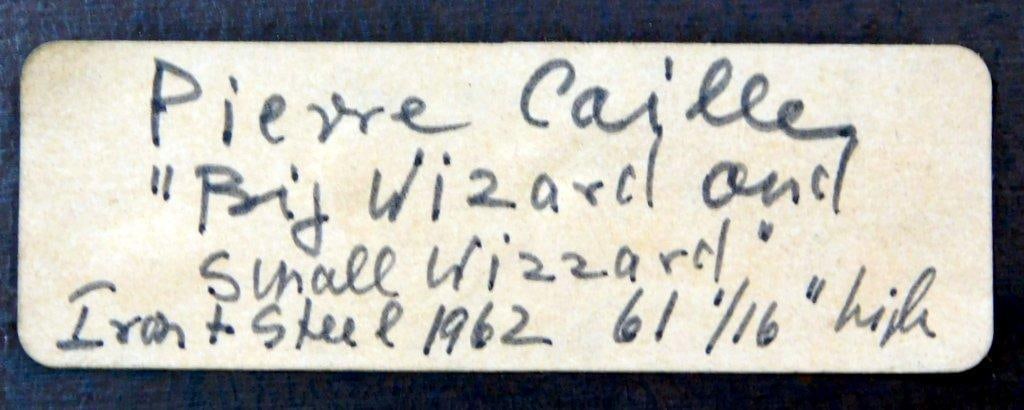 Pierre Caille,
"Big Wizard and
Small Wizzard"
Iron + Steel 1962 61 1/16" high